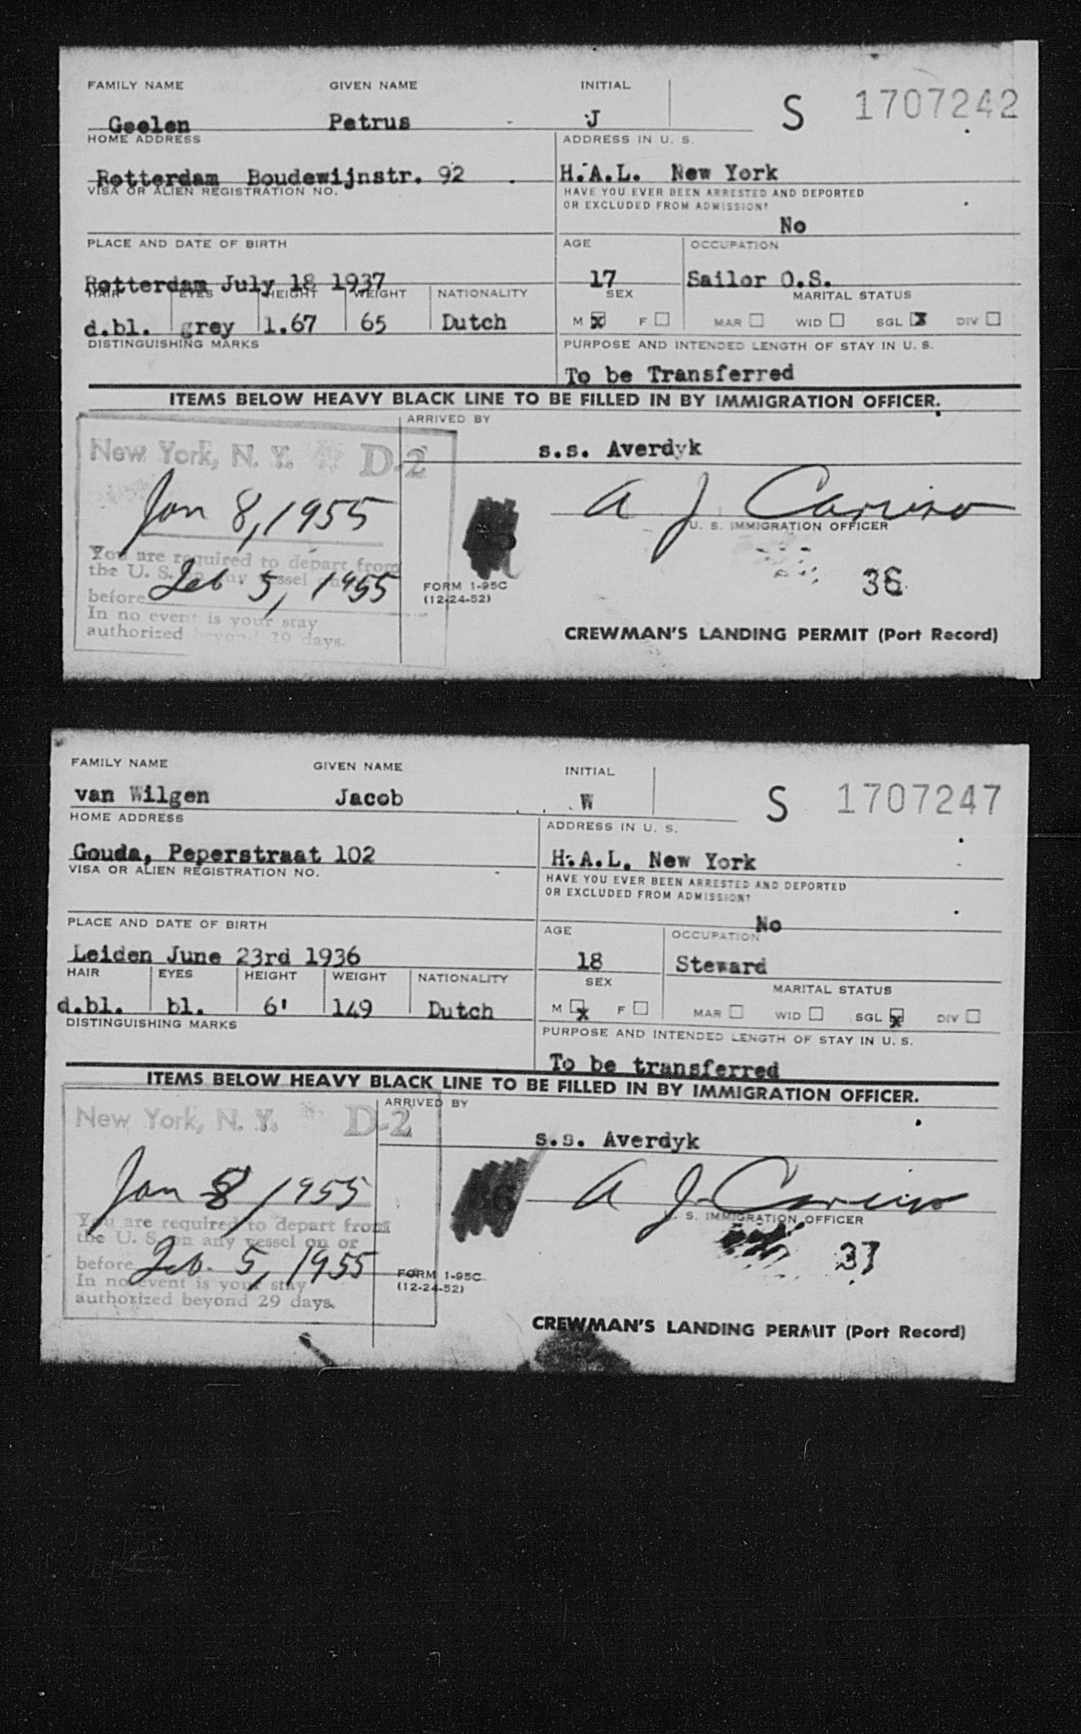 FAMILY NAME GIVEN NAME INITIAL
Geelen Petrus J S 1707242
HOME ADDRESS ADDRESS IN U. S.
Rotterdam Boudewijnstr. 92 H.A.L. New York
VISA OR ALIEN REGISTRATION NO. HAVE YOU EVER BEEN ARRESTED AND DEPORTED
OR EXCLUDED FROM ADMISSION?
No
PLACE AND DATE OF BIRTH AGE OCCUPATION
Rotterdam July 18 1937 17 Sailor O.S.
HAIR EYES HEIGHT WEIGHT NATIONALITY SEX MARITAL STATUS
d.bl. grey 1.67 65 Dutch M x F MAR WID SGL x DIV
DISTINGUISHING MARKS PURPOSE AND INTENDED LENGTH OF STAY IN U. S.
To be Transferred
ITEMS BELOW HEAVY BLACK LINE TO BE FILLED IN BY IMMIGRATION OFFICER.
ARRIVED BY
New York, N. Y. D-2 s.s. Averdyk
Jan 8, 1955 A J Caruso
U. S. IMMIGRATION OFFICER
You are required to depart from
the U. S. on any vessel on or
before Feb. 5, 1955 FORM I-95C 36
(12-24-52)
In no event is your stay
authorized beyond 29 days.
CREWMAN'S LANDING PERMIT (Port Record)
FAMILY NAME GIVEN NAME INITIAL
van Wilgen Jacob W S 1707247
HOME ADDRESS ADDRESS IN U. S.
Gouda, Peperstraat 102 H.A.L. New York
VISA OR ALIEN REGISTRATION NO. HAVE YOU EVER BEEN ARRESTED AND DEPORTED
OR EXCLUDED FROM ADMISSION?
No
PLACE AND DATE OF BIRTH AGE OCCUPATION
Leiden June 23rd 1936 18 Steward
HAIR EYES HEIGHT WEIGHT NATIONALITY SEX MARITAL STATUS
d.bl. bl. 6' 149 Dutch M x F MAR WID SGL x DIV
DISTINGUISHING MARKS PURPOSE AND INTENDED LENGTH OF STAY IN U. S.
To be transferred
ITEMS BELOW HEAVY BLACK LINE TO BE FILLED IN BY IMMIGRATION OFFICER.
ARRIVED BY
New York, N. Y. D-2 s.s. Averdyk
Jan 8, 1955 A J. Caruso
U. S. IMMIGRATION OFFICER
You are required to depart from
the U. S. on any vessel on or
before Feb. 5, 1955 FORM I-95C 37
(12-24-52)
In no event is your stay
authorized beyond 29 days.
CREWMAN'S LANDING PERMIT (Port Record)